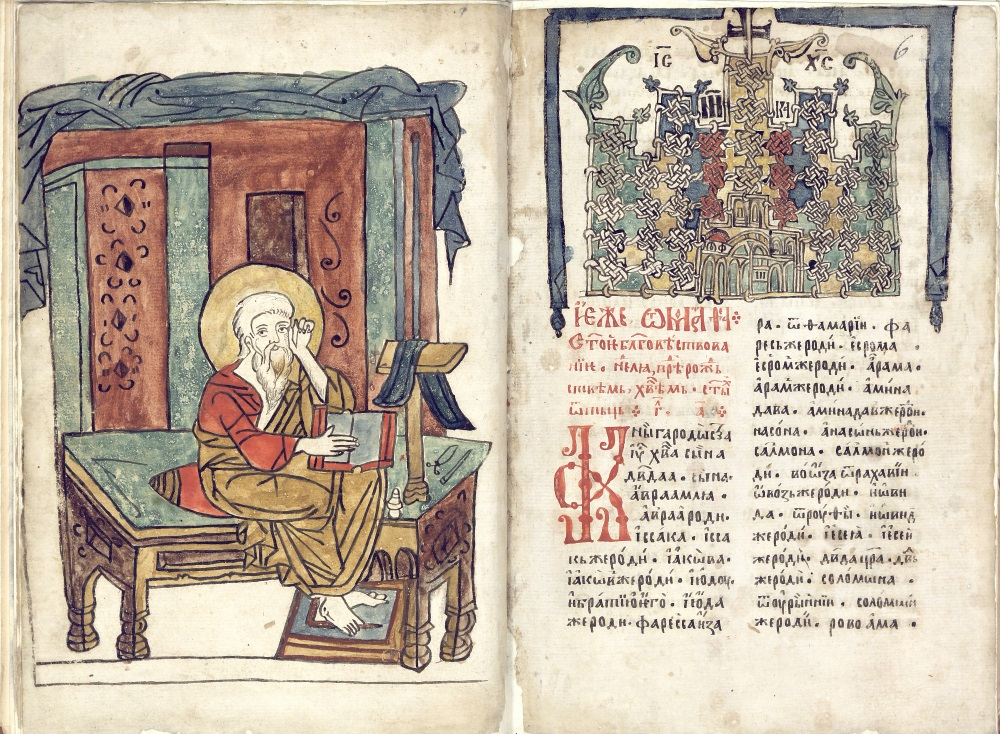 І҃С Х҃С
6
І҆ЕЖЕ Ѿ МАТ
Ст҃ои благовѣствова
нїе · прѣрожь
ствѣмь · хв҃ѣмь · ст҃ы
ѿць · г҃ · а҃
Книгы родьства
іу҃ хв҃а сына
дв҃дaа · сына
авраамлꙗ ·
авраа роди ·
іссака · ісса
кьжероди · іакѡва ·
іакѡвжероди · июдоу
ибратїю его · июда
жероди · фаресаиза
ра · ѿ ѳамарїи · фа
ресьжероди · есрома ·
есромжероди · арама ·
арамжероди · амина
дава · аминадавжерои ·
насона · анасѡньжерои ·
салмона · салмонжеро
ди · воѡза ѿрахавїи ·
ѡвида · ѿроуѳы · иѡвид
жероди · іесеꙗ · іесеи
жероди · дв҃да цр҃ꙗ · дв҃ь
жероди · соломѡна ·
ѿоурїинїи · соломѡн
жероди · ровоама ·